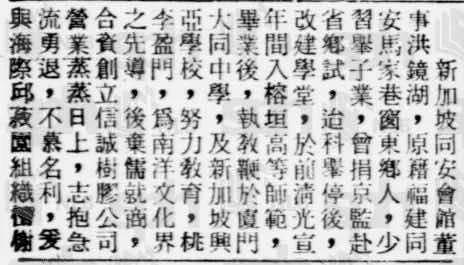 新加坡同安會館董
事洪鏡湖，原籍福建同
安馬家巷窗東鄉人，少
習舉子業，曾捐京監赴
省鄉試，迨科舉停後，
改建學堂，於前清光宣
年間入榕垣高等師範，
畢業後，執教鞭於廈門
大同中學，及新加坡興
亞學校，努力教育，桃
李盈門，爲南洋文化界
之先導，後棄儒就商，
合資創立信誠樹膠公司
營業蒸蒸日上，志抱急
流勇退，不慕名利，爰
與海際邱菽園組織